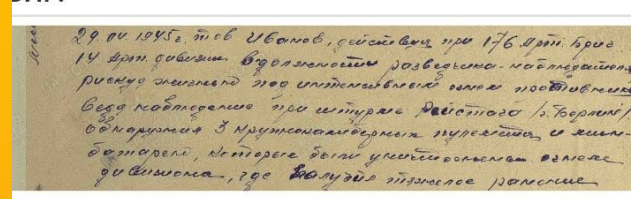 29.04.1945г. тов Иванов, действуя при 176 Арт. Бриг
14 Арт. дивизии в должности разведчика-наблюдателя
рискуя жизнью под интенсивным огнем противника
ведя наблюдение при штурме Рейстага /г. Берлин/
обнаружил 3 крупнокалиберных пулемета и мин-
батарею, которые были уничтожены огнем
дивизиона, где получил тяжелое ранение